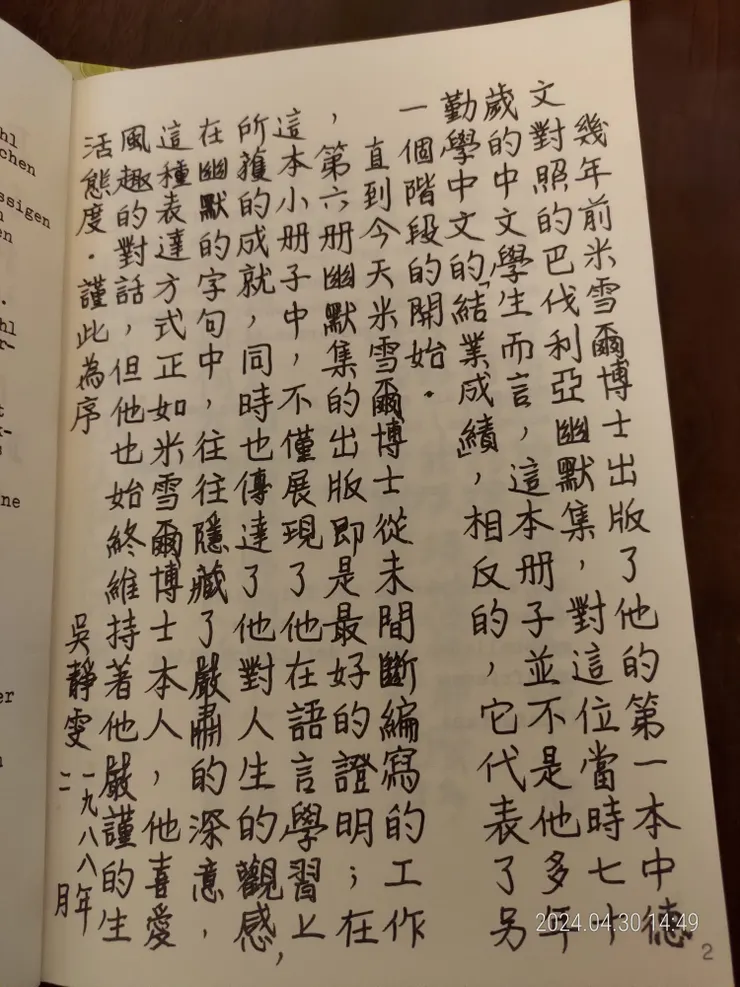 hl
chen
ssigen
n
en
hl
r-
t
k-
ne
er
幾年前米雪爾博士出版了他的第一本中德
文對照的巴伐利亞幽默集，對這位當時七十
歲的中文學生而言，這本册子並不是他多年
勤學中文的「結業成績，相反的，它代表了另
一個階段的開始．
直到今天米雪爾博士從未間斷編寫的工作
，第六册幽默集的出版即是最好的證明；在
這本小册子中，不僅展現了他在語言學習上
所獲的成就，同時也傳達了他對人生的觀感，
在幽默的字句中，往往隱藏了嚴肅的深意，
這種表達方式正如米雪爾博士本人，他喜愛
風趣的對話，但他也始終維持著他嚴謹的生
活態度．謹此為序
吳靜雯
一九八八年
二月
2024.04.30 14:49
2